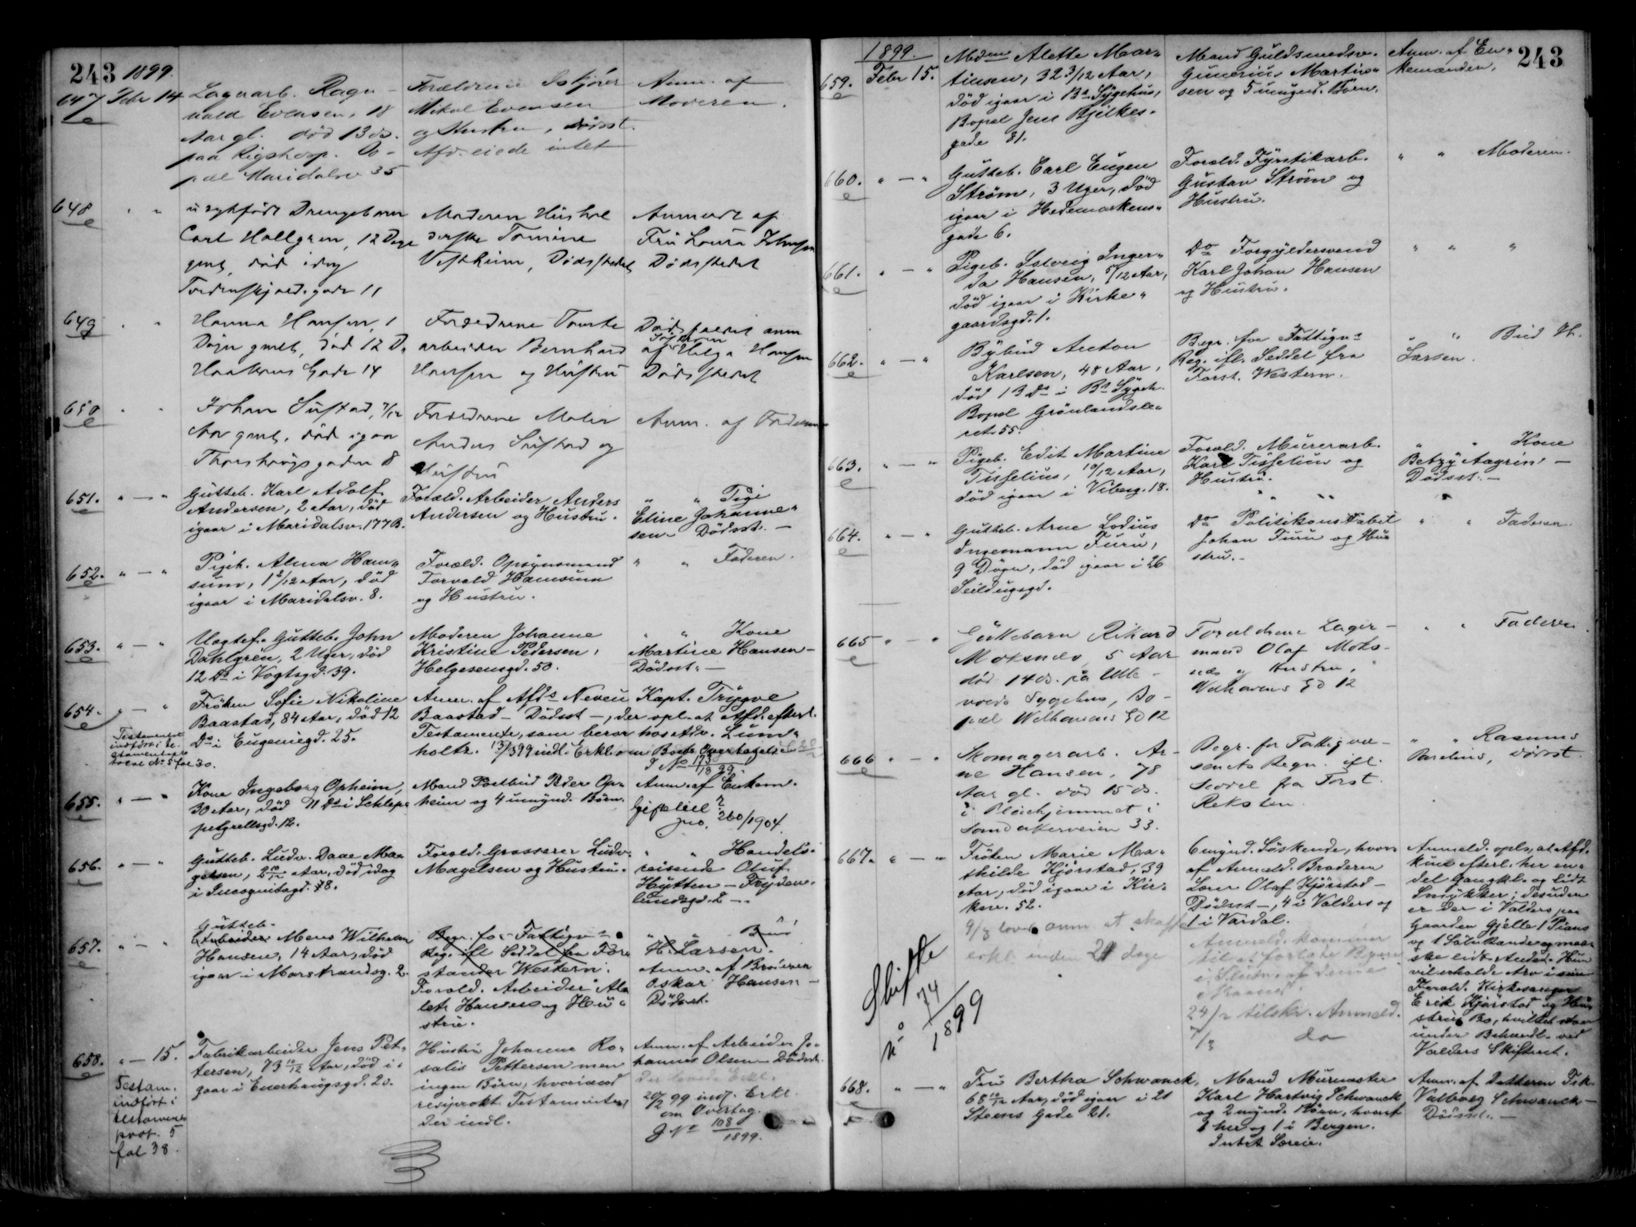 243 1899.
647 Febr 14 Lagerarb. Ragn-
vald Evensen, 18
Aar gl. død 13 ds.
paa Rigshosp. Bo-
pæl Maridalsv 35
Forældrene
Mikal Evensen
og Hustru, Dødsst.
Afd. eiede intet
Anm. af
Moderen.
648 " "
Drengebarn
Carl Hallgren, 12 Dage
gml, død idag
Tordenskjoldsgade 11
Moderen Hushol
derske Tomine
Vestheim, Dødsstedet
Anmeldt af
Fru Laura Johnsen
Dødsstedet
649 " "
Hanna Hansen, 1
Døgn gml, død 12 Ds
Haakons Gade 14
Forældrene Tomte
arbeider Bernhard
Hansen og Hustru
Dødsfaldet anm
af Helga Hansen
Dødsstedet
650 " "
Johan Sustad, 7/12
Aar gml. død igaar
Thorshaugsgaden 8
Forældrene Maler
Anders Sustad og
Hustru
Anm. af Faderen
651. " — "
Gutteb. Karl Adolf
Andersen, 2 Aar, død
igaar i Maridalsv. 177B.
Foræld. Arbeider Anders
Andersen og Hustru.
" " Pige
Eline Johanne-
sen Dødsst. —
652. " — "
Pigeb. Alma Ham-
sum, 1 2/12 Aar, død
igaar i Maridalsv. 8.
Foræld. Opsynsmand
Torvald Hamsum
og Hustru.
" " Faderen.
653. " — "
Uægtef. Gutteb. John
Dahlgrén, 2 Uger, død
12 Ds i Vogtsgd. 39.
Moderen Johanne
Kristine Pedersen,
Helgesensgd. 50.
" " Kone
Martine Hansen —
Dødsst. —
654. " — "
Testamentet
indført i Te-
stamentspro-
tocol No 5 fol 30.
Frøken Sofie Nikoline
Baastad, 84 Aar, død 12
Ds i Eugeniegd. 25.
Anm. af Afds Neveu Kapt. Trygve
Baastad — Dødsst —, der opl. at Afd. efterl.
Testamente, som beror hos Adv. Lum-
holtz. 13/3 99 indl. Erkl. om Boets Overtagelse
J No 193/1899.
655. " — "
Kone Ingeborg Opheim,
30 Aar, død 11 Ds i Schleps
petgrellsgd. 12.
Mand Postbud Peder Op-
heim og 4 umynd. Børn.
Anm. af Enkem.
Giftetil?
Jno. 260/1904.
656. " — "
Gutteb. Ludv. Daae Ma-
gelsen, Aar, død idag
i Incognitogd. 18.
Foræld. Grosserer Ludv.
Magelsen og Hustru.
" " Handels-
reisende Oluf
Hytten — Fryden-
lundsgd. 2 —
657. " — "
Gutteb.
Arbeider Mens Wilhelm
Hansen, 14 Aar, død
igaar i Marstrandsg. 2.
Begr. for Fattigv
Reg. ifl Seddel fra For-
stander Western.
Foræld. Arbeider
Hansen og Hu-
stru.
" " Bud
H. Larsen.
Anm. af Broderen
Oskar Hansen —
Dødsst.
658. " — 15.
Testam.
indført i
testaments
prot. 5
fol 38.
Fabrikarbeider Jens Pet-
tersen, 73 Aar, død i-
gaar i Enerhaugsgd. 20.
Hustru Johanne Ro-
salie Pettersen men
ingen Børn, hvorimod
reciprokt Testamente,
der indl.
Anm. af Arbeider Jo-
hannes Olsen — Dødsst.
99 indl. Erkl.
om Overtag.
J No 108/1899.

1899. 243
659. Febr 15.
Mdm Alette Mar-
tinsen, 32 3/12 Aar,
død igaar i Bs Sygehus,
Bopæl Jens Bjelkes-
gade 31.
Mand Guldsmedsv.
Gunerius Martin-
sen og 5 umynd. Børn.
Anm. af En-
kemanden.
660. " — "
Gutteb. Carl Eugen
Strøm, 3 Uger, død
igaar i Hedemarkens-
gade 6.
Foræld. Fyrstikarb.
Gustav Strøm og
Hustru.
" " Moderen.
661. " — "
Pigeb. Solveig Inger-
da Hansen, 5/12 Aar,
død igaar i Kirke-
gaardsgd. 1.
Do Forgyldersvend
Karl Johan Hansen
og Hustru.
" " "
662. " — "
Bybud Anton
Karlsen, 48 Aar,
død 13 Ds i Bs Sygeh.
Bopæl Grønlandsle-
ret 55.
Begr. for Fattigv
Reg. ifl. Seddel fra
Forst. Western.
" " Bud H.
Larsen.
663. " — "
Pigeb. Edit Martine
Tisselius, 10/12 Aar,
død igaar i Vibesg. 18.
Foræld. Murerarb.
Karl Tisselius og
Hustru.
" " Kone
Betzy Aagrim —
Dødsst. —
664. " — "
Gutteb. Arne Lodius
Ingemann Furu,
9 Døgn, død igaar i 26
Seildugsgd.
Do Politikonstabel
Johan Furu og Hu-
stru.
" " Faderen
665 " — "
Ægtebarn Rikard
Moksnes, 5 Aar
død 14 ds. på Ulle-
volds Sygehus, Bo-
pæl Welhavens Gd 12
Forældrene Lager-
mand Olaf Moks-
nes og Hustru,
Welhavens Gd 12
" " Faderen
666 " — "
Skomagerarb. Ar-
ne Hansen, 78
Aar gl. død 15 ds.
i Pleiehjemmet i
Sandakerveien 33.
Begr. for Fattigvæ-
senets Regn. ifl.
Seddel fra Forst
Reksten.
" " Rasmus
Børelius, Dødsst
667. " — "
Frøken Marie Ma-
thilde Hjørstad, 39
Aar, død igaar i Kir-
kev. 52.
9/3 lovede anm. at skaffe
erkl. inden 21 dage
Skifte
No 74/1899
6 mynd. Søskende, hvor-
af Anmeld. Broderen
Lærer Olaf Hjørstad —
Dødsst —, 4 i Valders og
1 i Vardal.
24/2 tilskr. Anmeld.
7/3 do
Anmeld. opl., at Afd.
kun efterl. her en-
del Gangkl. og lidt
Smykker; desuden
er der i Valders paa
Gaarden Gjelle 1 Piano
og 1 Sølvkande og maa-
ske lidt Andet. Hun
vil erholde Arv i sine
Foræld. Kirkesanger
Erik Hjørstad og Hu-
strus Bo, hvilket staar
under Behandl. ved
Valders Skifteret.
668. " — "
Fru Bertha Schwanck,
68 Aar, død igaar i 21
Steens Gade 21.
Mand Murmester
Karl Hartvig Schwanck
og 2 mynd. Børn, hvoraf
1 her og 1 i Bergen.
Intet Særeie.
Anm. af Datteren Frk.
Valborg Schwanck —
Dødsst. —